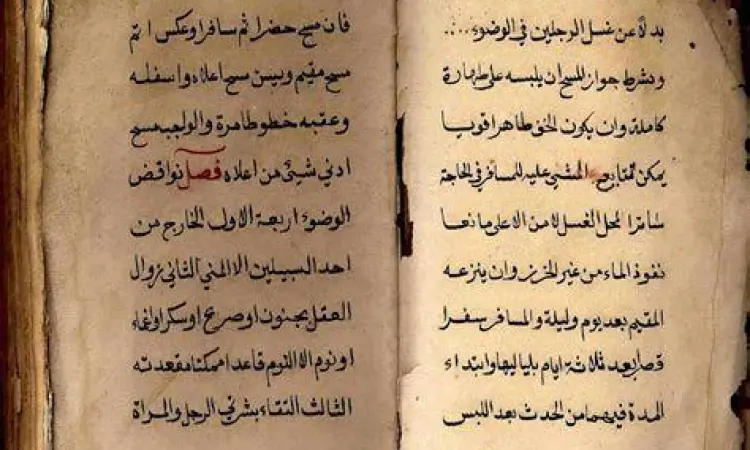 بدلا عن غسل الرجلين في الوضوء
ويشرط جواز المسح ان يلبسه على طهارة
كاملة وان يكون الخف طاهرا قويا
يمكن تتابع المشي عليه للمسافر في الحاجة
ساترا لمحل الغسل لا من الاعلى مانعا
نفوذ الماء من غير الخرز وان ينزعه
المقيم بعد يوم وليلة والمسافر سفرا
قصر بعد ثلاثة ايام بلياليها وابتداء
المدة فيهما من الحدث بعد اللبس
فان مسح حضرا ثم سافر او عكس اتم
مسح مقيم ويسن مسح اعلاه واسفله
وعقبه خطوطا مرة والواجب مسح
ادنى شيئ من اعلاه فصل نواقض
الوضوء اربعة الاول الخارج من
احد السبيلين الا المني الثاني زوال
العقل بجنون او صرع او سكر او اغماء
او نوم الا النوم قاعدا ممكنا مقعدته
الثالث التقاء بشرتي الرجل والمراة